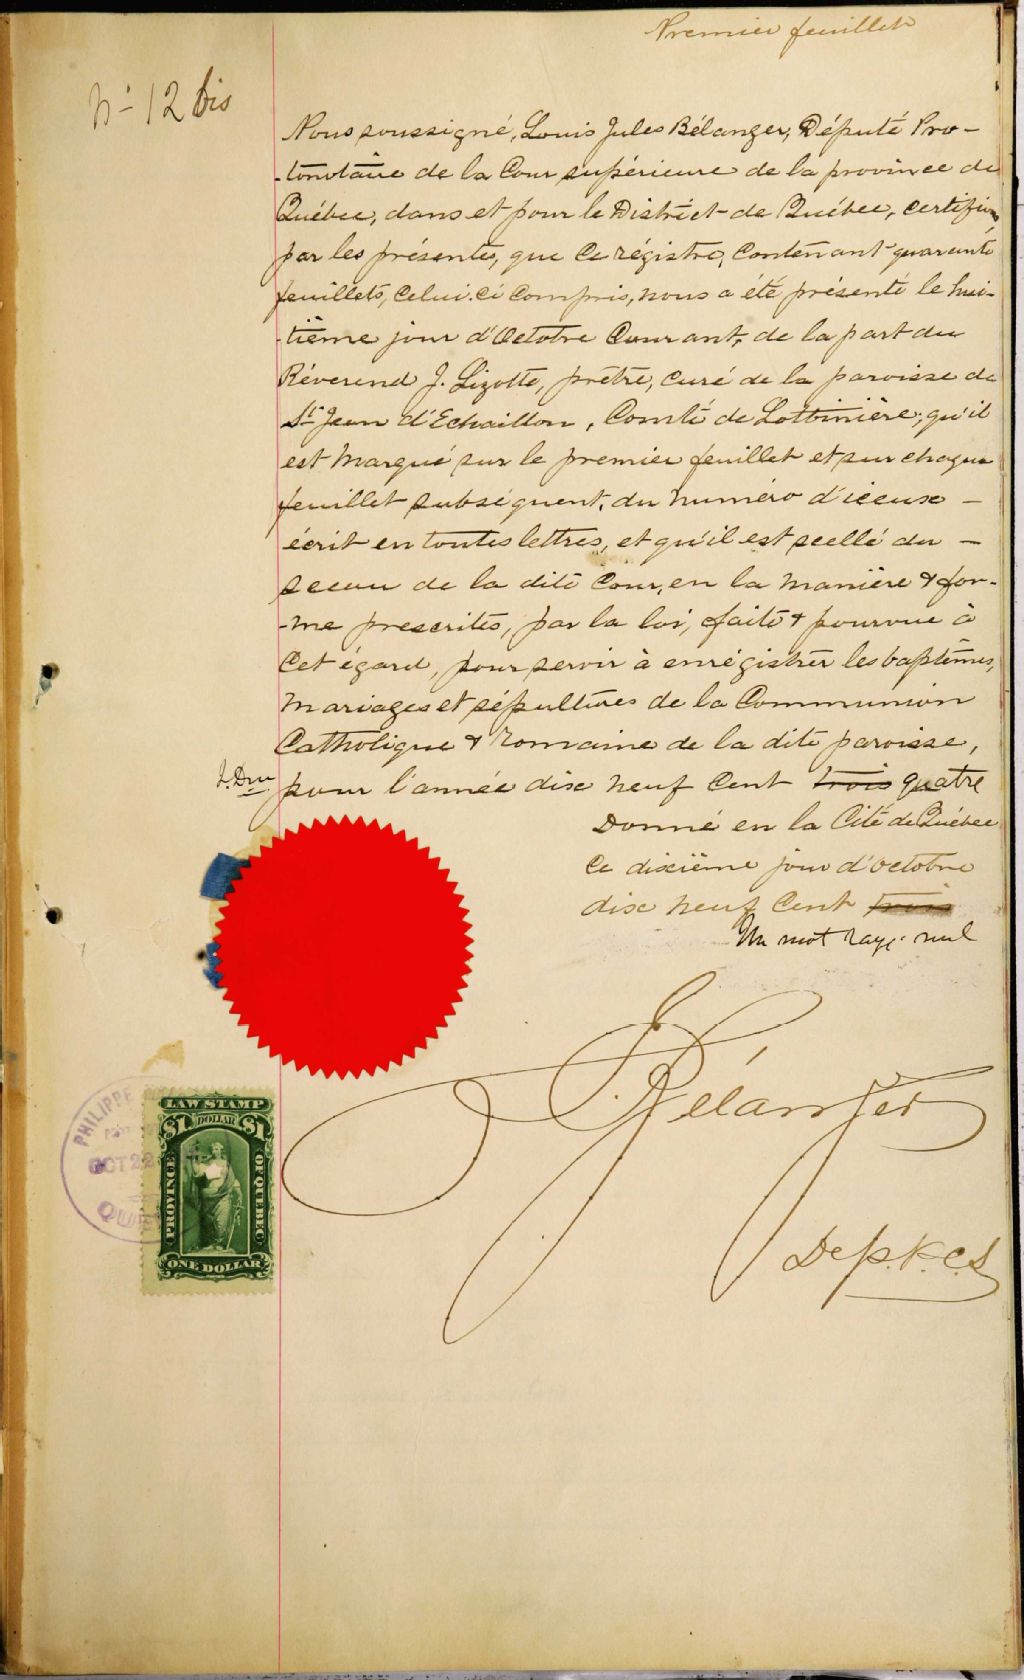 Premier feuillet
No 12 bis
Nous soussigné, Louis Jules Bélanger, Député Pro-
-tonotaire de la Cour supérieure de la province de
Québec, dans et pour le District de Québec, certifions
par les présentes, que ce régistre, contenant quarante
feuillets, celui-ci compris, nous a été présenté le hui-
-tième jour d'Octobre courant, de la part du
Révérend J. Lizotte, prêtre, curé de la paroisse de
St Jean d'Echaillon, Comté de Lotbinière; qu'il
est marqué sur le premier feuillet et sur chaque
feuillet subséquent, du numéro d'iceux -
écrit en toutes lettres, et qu'il est scellé du -
sceau de la dite Cour, en la manière & for-
-me prescrites, par la loi, faite & pourvue à
cet égard, pour servir à enrégistrer les baptêmes,
mariages et sépultures de la Communion
Catholique & Romaine de la dite paroisse,
pour l'année dix neuf cent trois quatre
Donné en la Cité de Québec
ce dixième jour d'octobre
dix neuf cent trois
Un mot rayé nul
Bélanger
Dep. P.C.S
PHILIPPE
OCT 22
LAW STAMP
$1 DOLLAR $1
PROVINCE OF QUEBEC
ONE DOLLAR